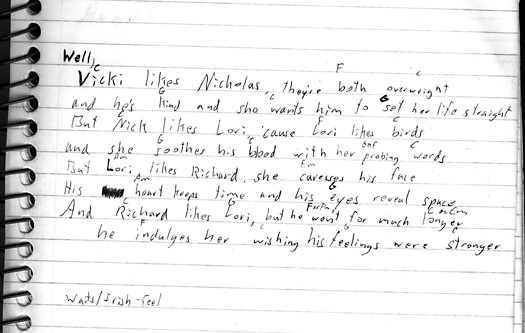 Well, C
F C
Vicki likes Nicholas, they're both overweight
G C G
and he's kind and she wants him to set her life straight
F C
But Nick likes Lori, 'cause Lori likes birds
G C
and she soothes his blood with her probing words
Am Em
But Lori likes Richard, she caresses his face
Am G
His heart keeps time and his eyes reveal space
C
And Richard likes Lori, but he won't for much longer
F G C
he indulges her wishing his feelings were stronger
Waits/Irish-feel